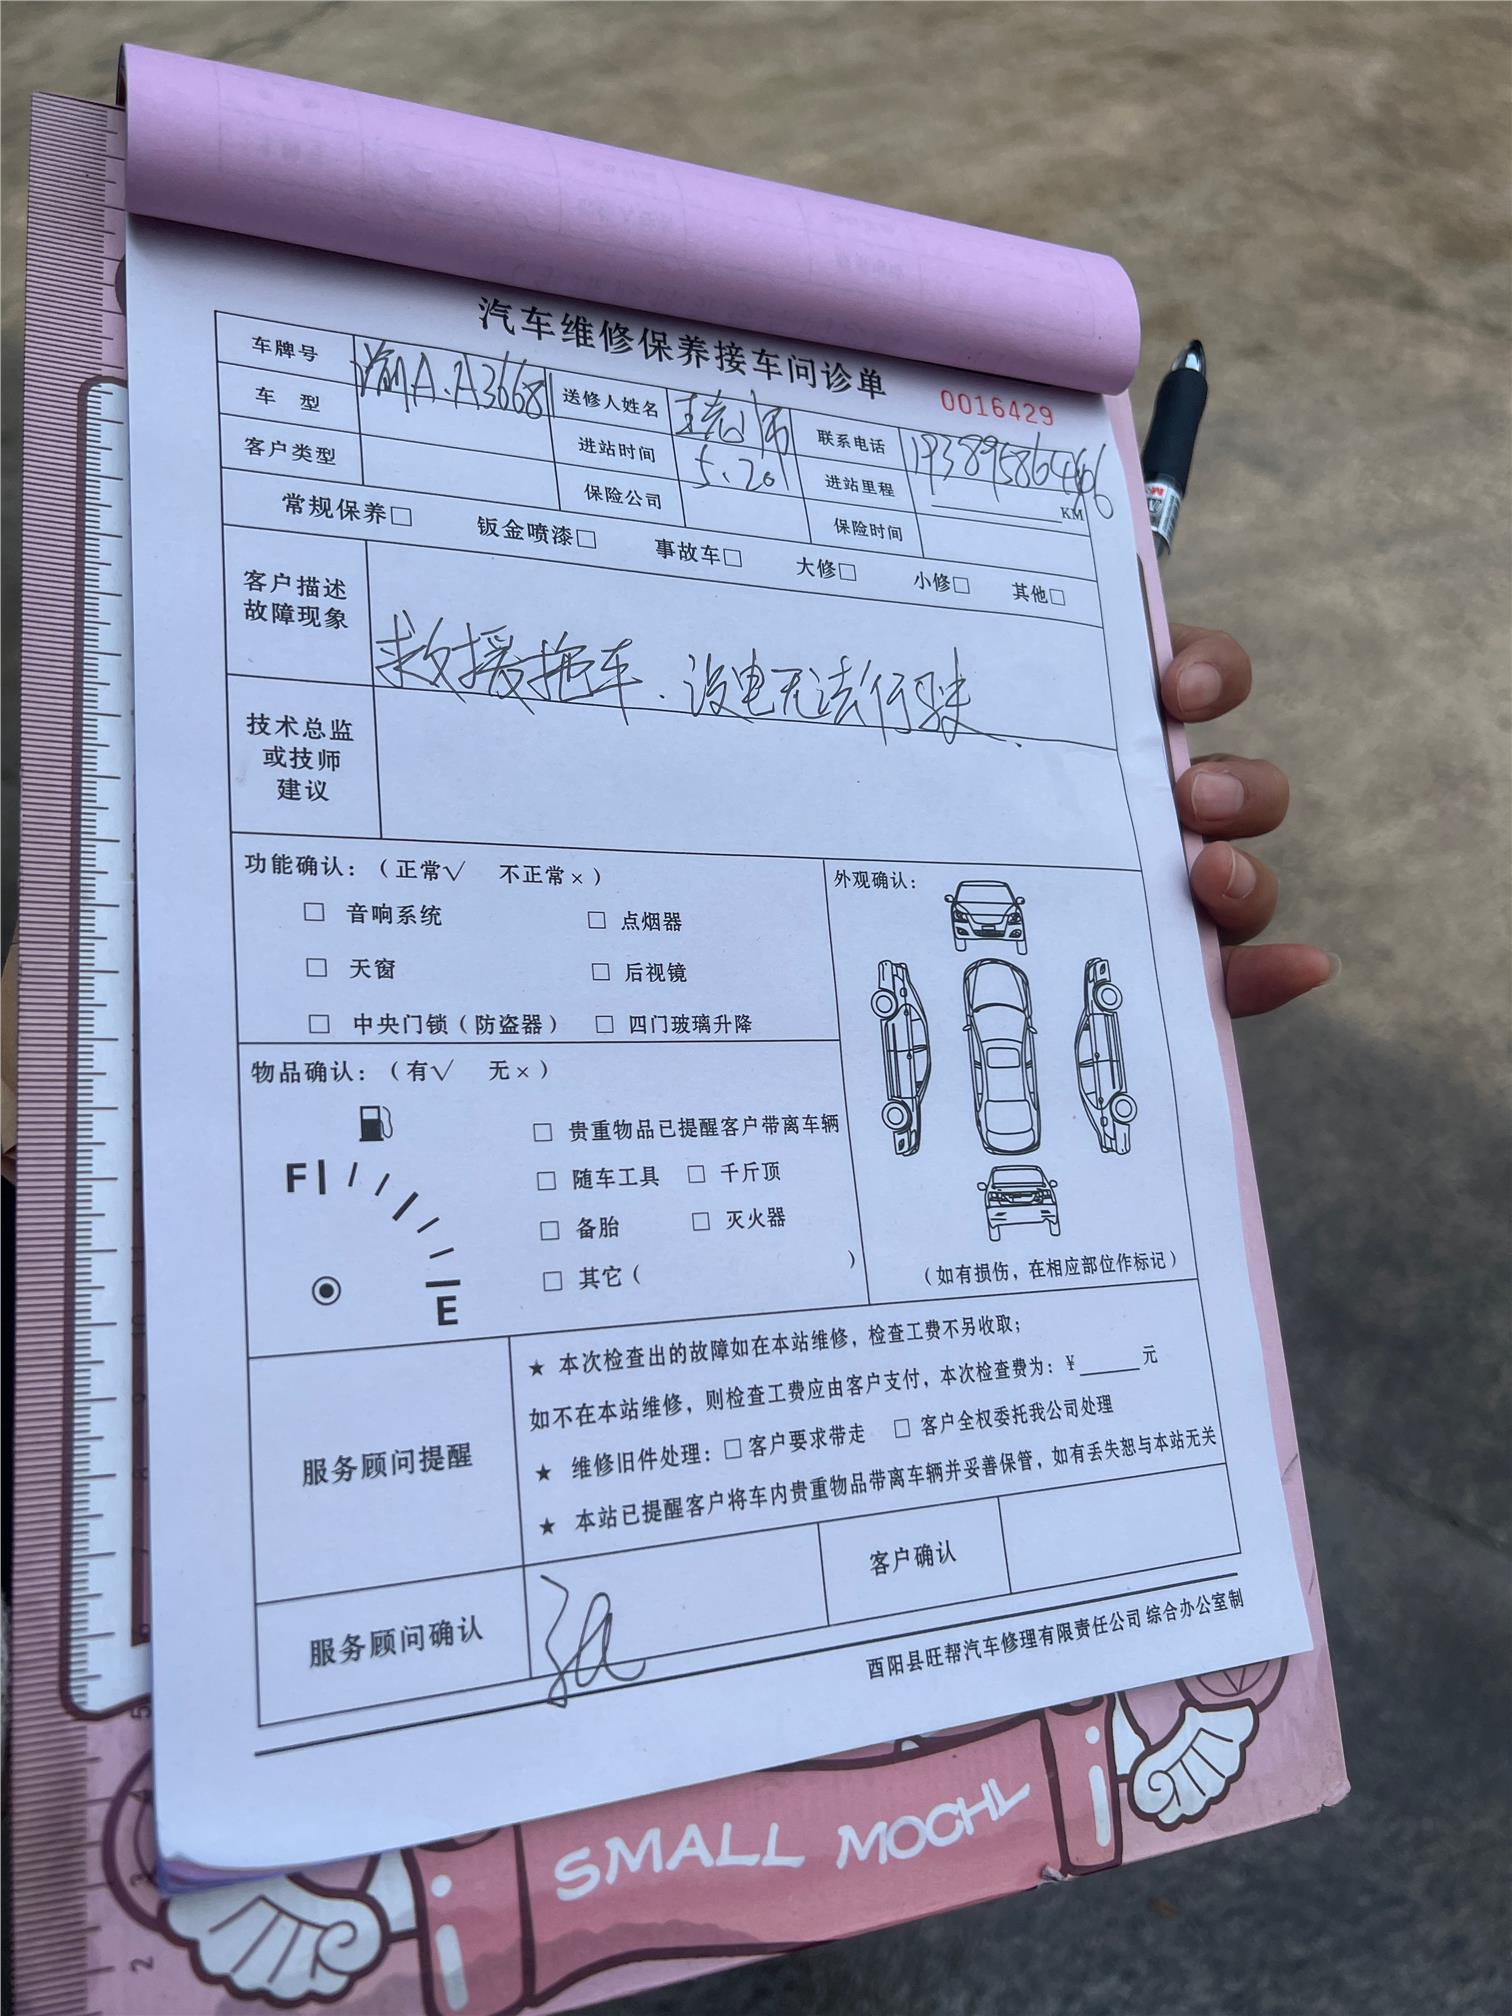 汽车维修保养接车问诊单
0016429
车牌号 渝A·A3668 送修人姓名 王老师 联系电话
车 型 进站时间 5.20 进站里程 KM
客户类型 保险公司 保险时间
常规保养□ 钣金喷漆□ 事故车□ 大修□ 小修□ 其他□
客户描述
故障现象
救援拖车.没电无法行驶.
技术总监
或技师
建议
功能确认：（正常√ 不正常×）
□ 音响系统 □ 点烟器
□ 天窗 □ 后视镜
□ 中央门锁（防盗器） □ 四门玻璃升降
外观确认：
（如有损伤，在相应部位作标记）
物品确认：（有√ 无×）
F
E
□ 贵重物品已提醒客户带离车辆
□ 随车工具 □ 千斤顶
□ 备胎 □ 灭火器
□ 其它（ ）
服务顾问提醒
★ 本次检查出的故障如在本站维修，检查工费不另收取；
如不在本站维修，则检查工费应由客户支付，本次检查费为：¥______元
★ 维修旧件处理：□客户要求带走 □ 客户全权委托我公司处理
★ 本站已提醒客户将车内贵重物品带离车辆并妥善保管，如有丢失恕与本站无关
服务顾问确认 客户确认
酉阳县旺帮汽车修理有限责任公司 综合办公室制
SMALL MOCHI